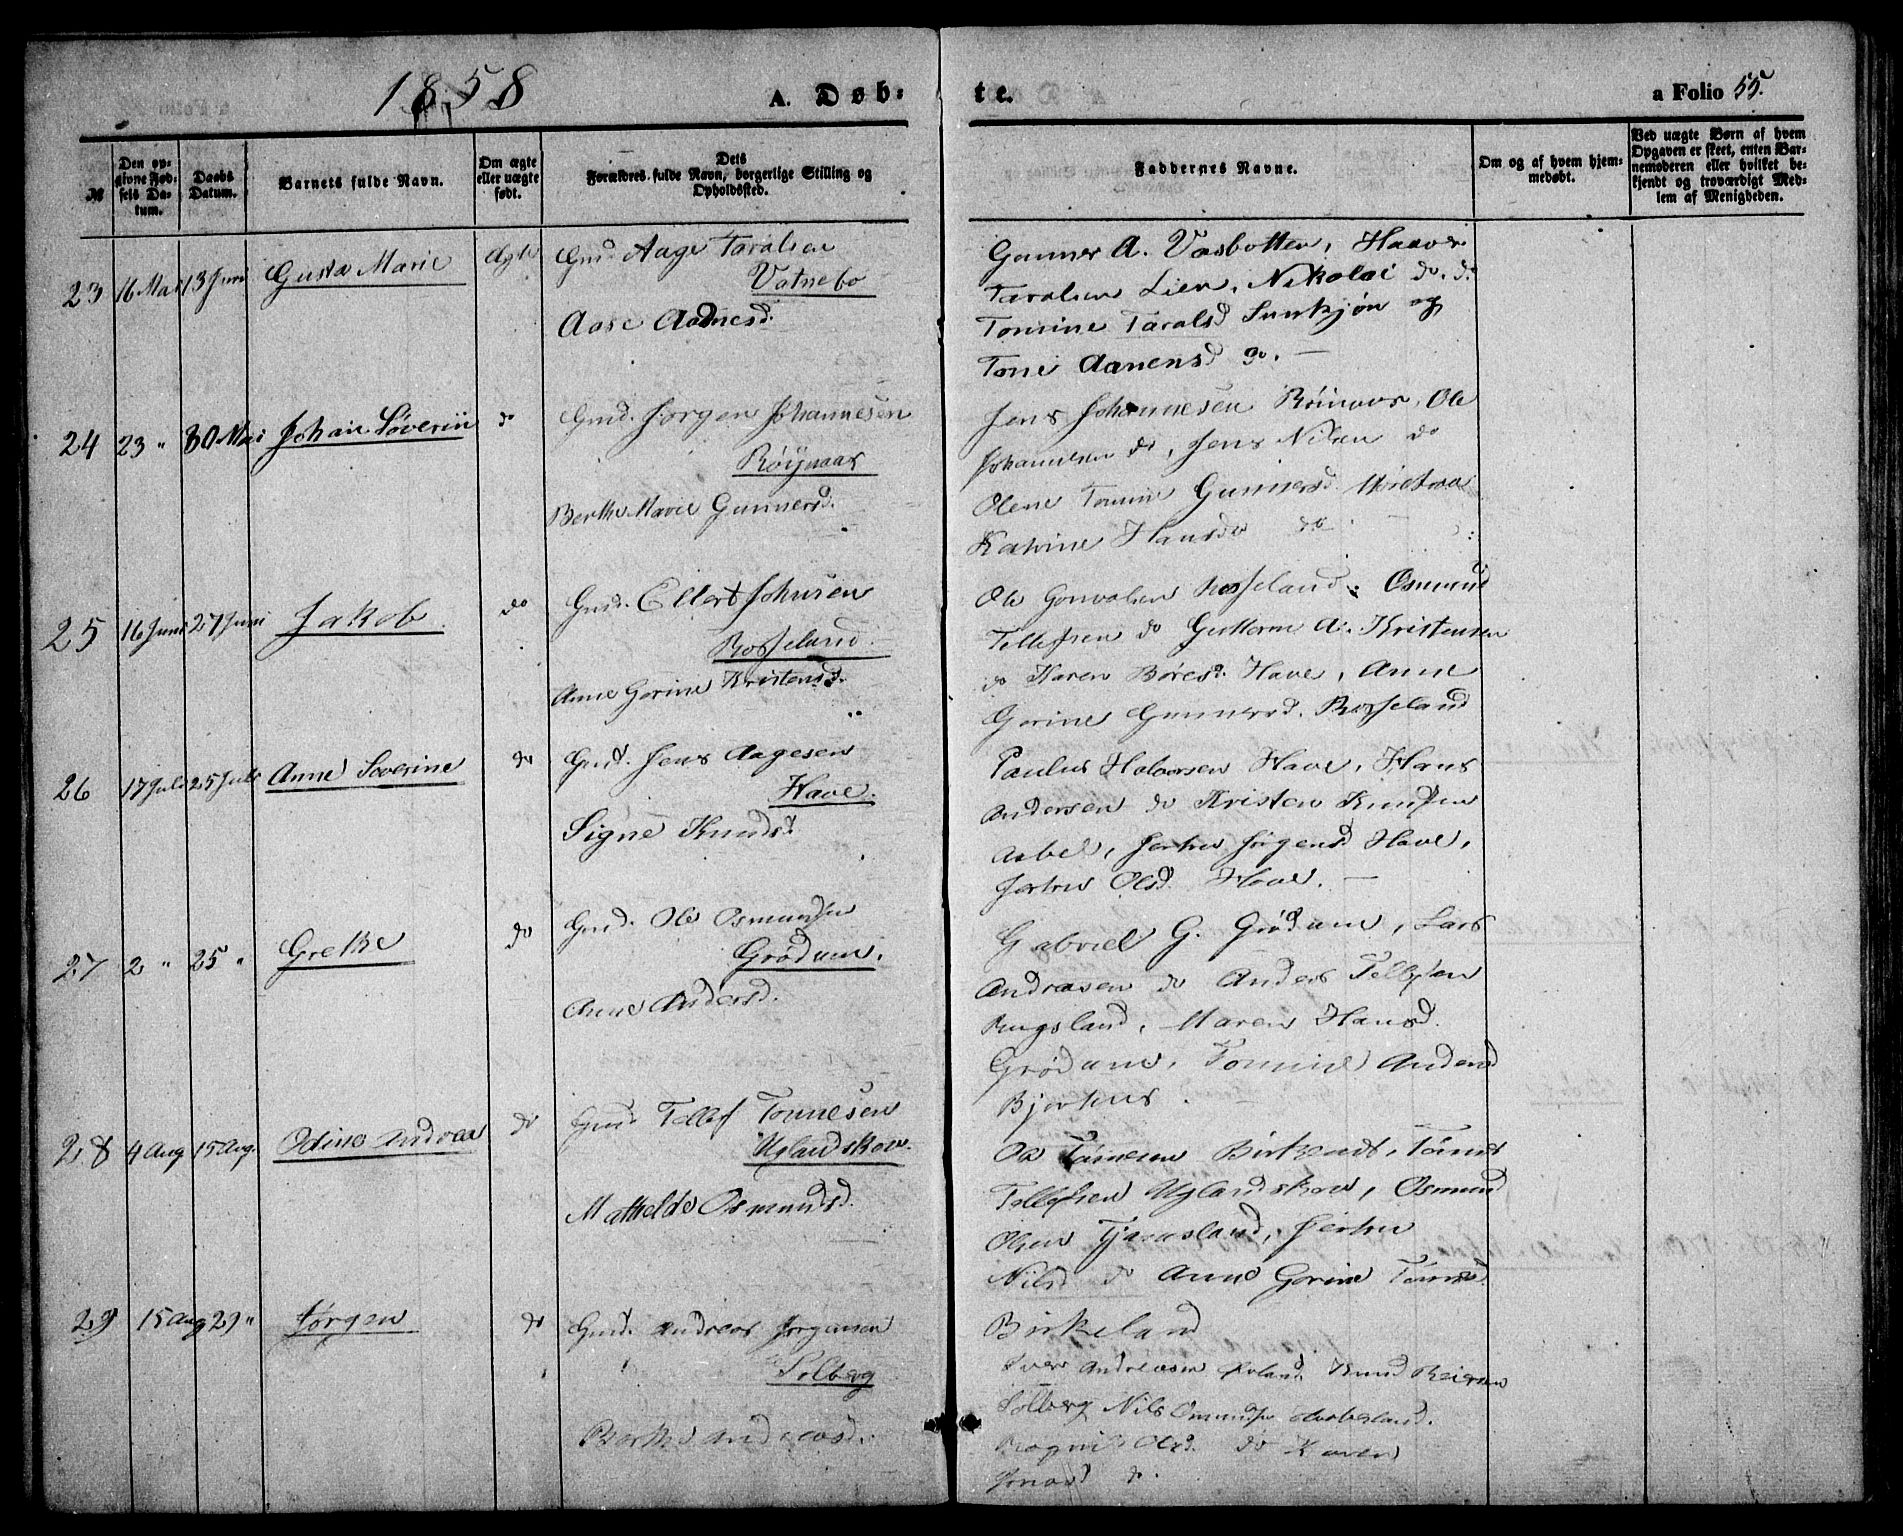 1858
A. Døb-
te.
a Folio 55.
№
Den op-
givne Fød-
sels Da-
tum.
Daabs
Datum.
Barnets fulde Navn.
Om ægte
eller uægte
født.
Dets
Forældres fulde Navn, borgerlige Stilling og
Opholdssted.
Faddernes Navne.
Om og af hvem hjem-
medøbt.
Ved uægte Børn af hvem
Opgaven er skeet, enten Bar-
nemoderen eller hvilket be-
kjendt og troværdigt Med-
lem af Menigheden.
23
16 Mai
13 Juni
Gusta Marie
Ægte
Gmd Aage Taralsen
Vatnebo
Aase Aadnesd.
Gunner A. Vasbotten, Haaver
Taralsen Lien, Nikolai do. do
Tomine Taralsd og
Tone Aanensd do. —
24
23 "
30 Mai
Johan Søverin
do
Gmd. Jørgen Johannesen
Röynaas
Berthe Marie Gunnersd.
Jens Johannesen Röinaas, Ole
Johannesen do, Jens Nilsen do
Olene Tomine Gunnersd.
Katrine Hansd do
25
16 Juni
27 Juni
Jakob
do
Gmd. Ellert Johnsen
Rosseland
Anne Gorine Kristensd.
Ole Rosseland, Osmund
Tellefsen do Guttorm A. Kristensen
do Karen Børesd. Have, Anne
Gorine Gunnersd. Rosseland
26
17 Juli
25 Juli
Anne Severine
do
Gmd. Jens Aagesen
Have.
Signe Knudsd.
Paulus Halvorsen Have, Hans
Andersen do Kristen Knudsen
Jørgensd. Have,
Olsd. Have. —
27
2 "
25 "
Grethe
do
Gmd. Ole Osmundsen
Grødum.
Anne Andersd.
Gabriel G. Grødum, Lars
Andreasen do Anders Tellefsen
Rugsland, Maren Hansd.
Grødum, Tomine Andersd
28
4 Aug
15 Aug.
Odine Andrea
do
Gmd. Tellef Tønnesen
Uglandskov.
Mathilde Osmundsd.
Ole Tønnesen Tønnes
Tellefsen Uglandskov, Osmund
Olsen
Nilsd do Anne Gorine Tønnesd.
Birkeland
29
15 Aug
29 "
Jørgen
do
Gmd. Andreas Jørgensen
Solberg
Berthe Andreasd.
Andreasen Knud Reiersen
Solberg Nils Omundsen
Olsd. do Karen
do.